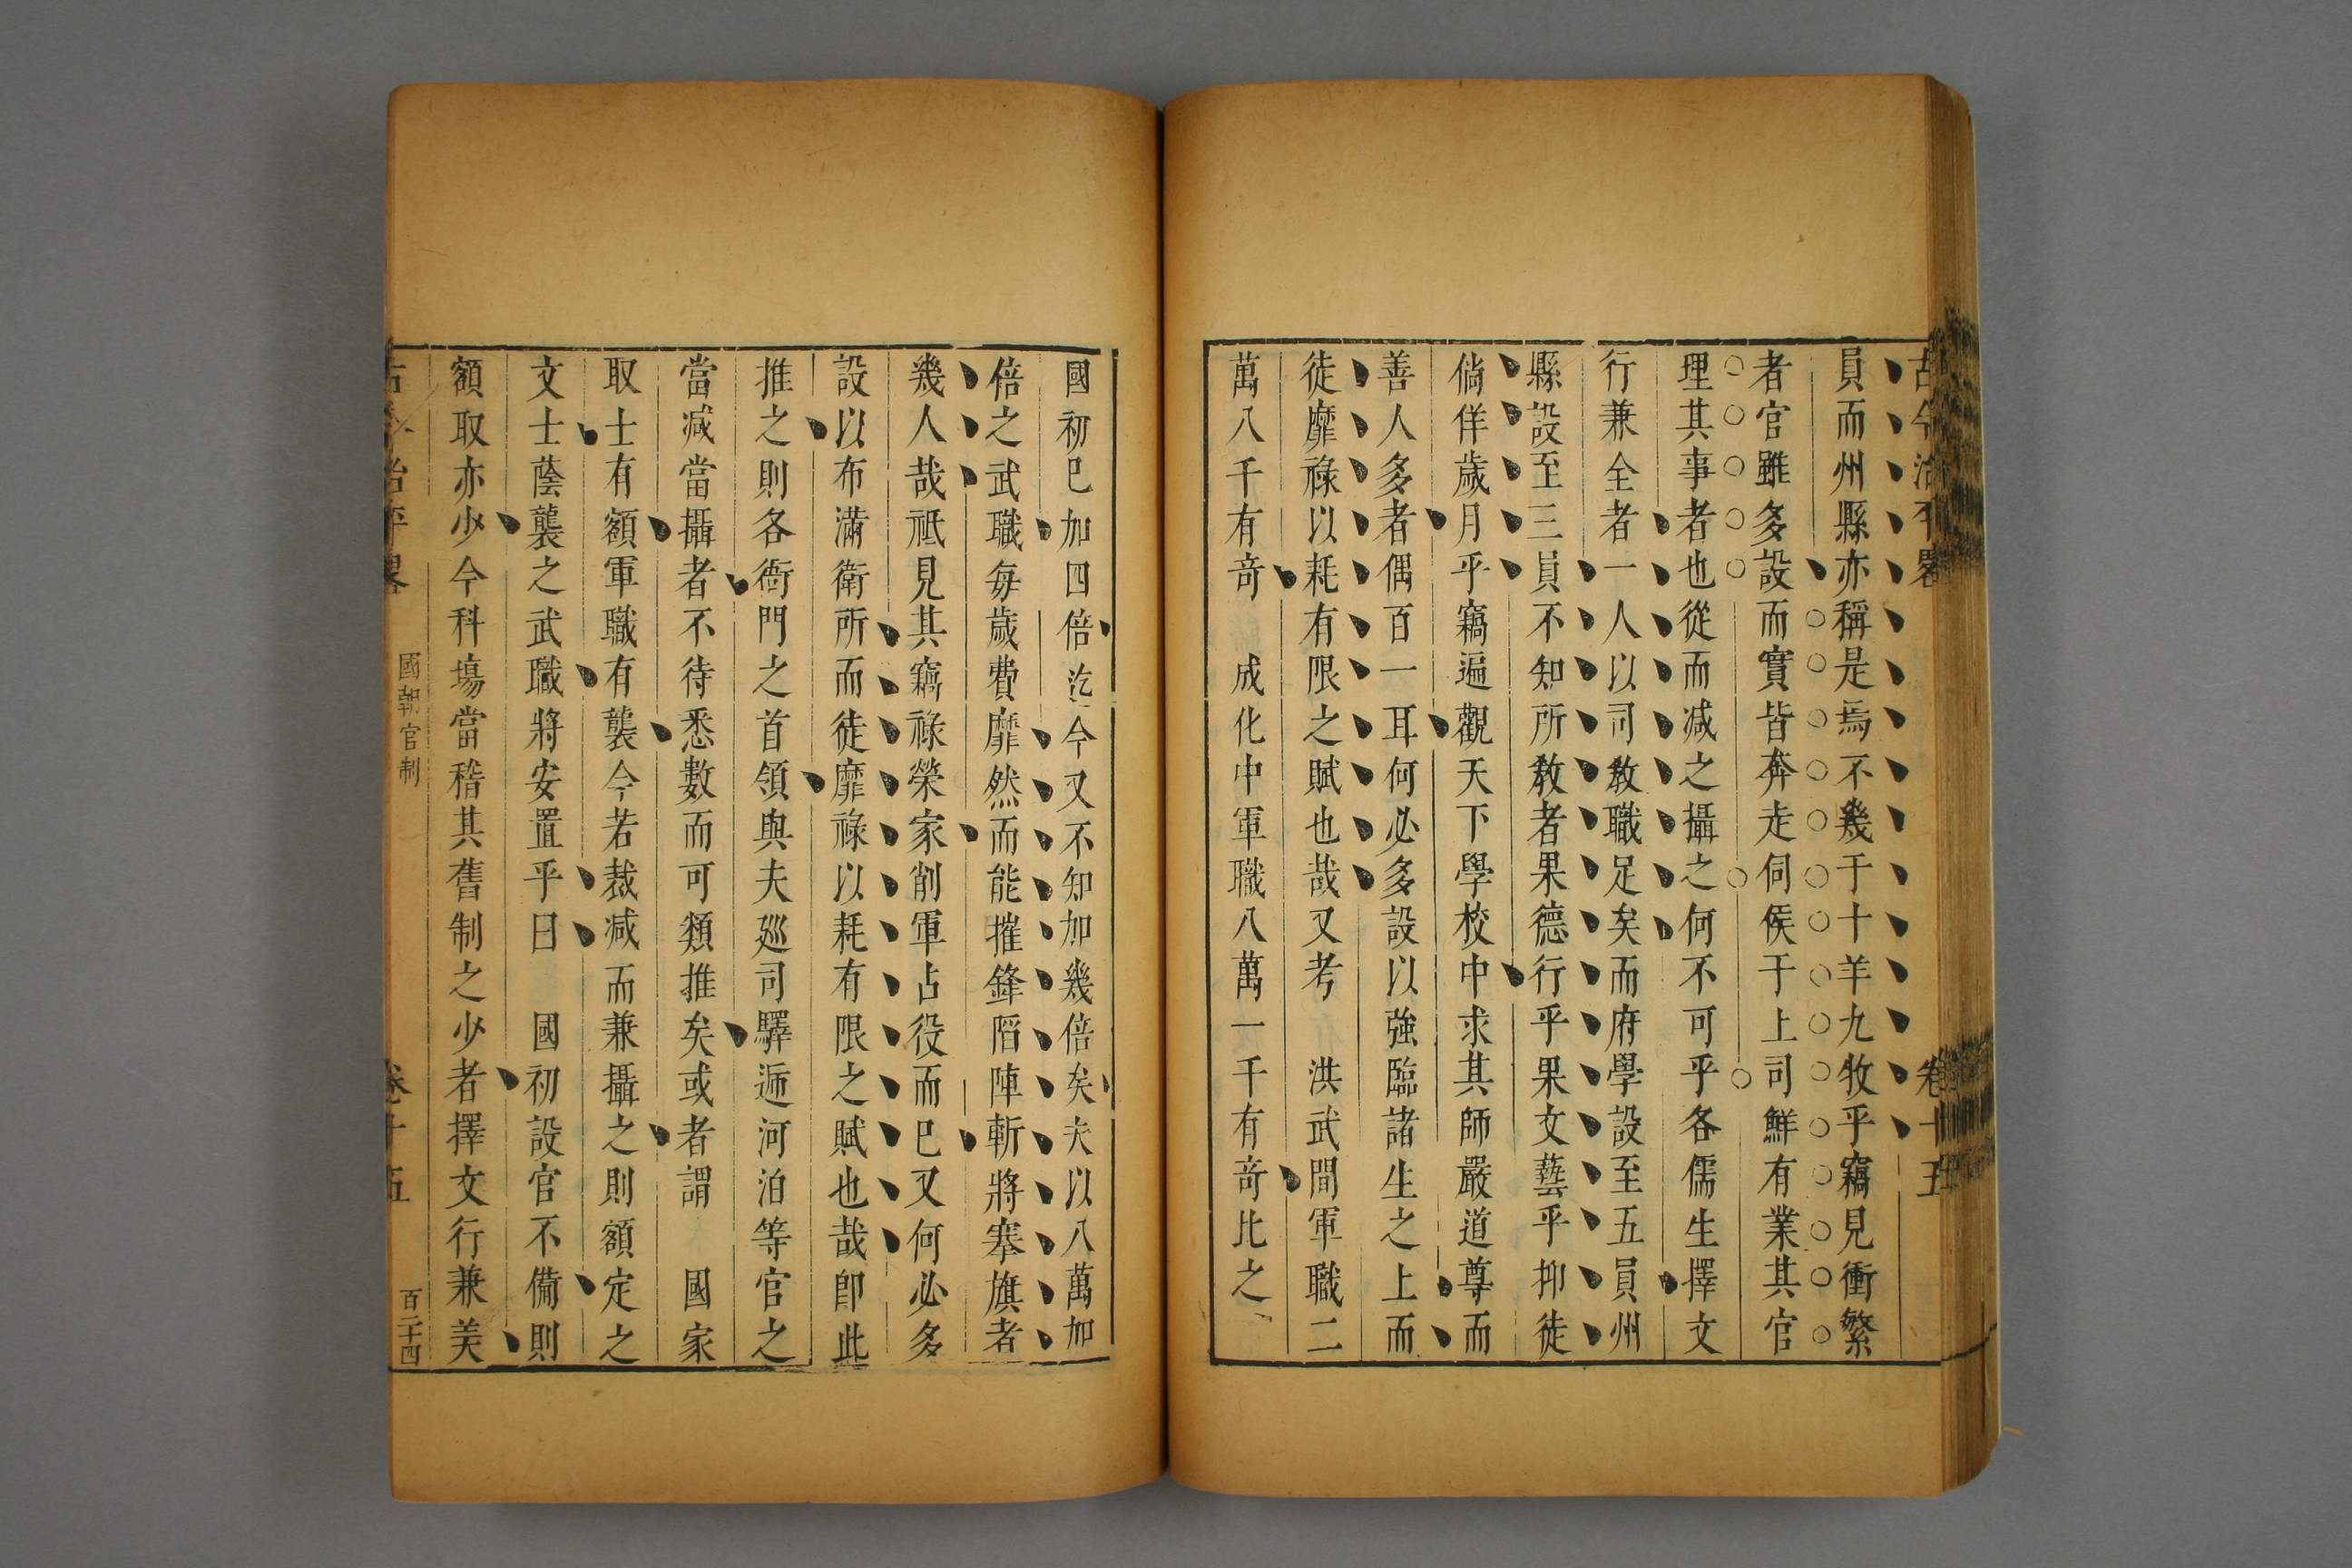 古今治平畧 卷十五
員而州縣亦稱是焉不幾于十羊九牧乎竊見衝繁
者官雖多設而實皆奔走伺候于上司鮮有業其官
理其事者也從而减之攝之何不可乎各儒生擇文
行兼全者一人以司教職足矣而府學設至五員州
縣設至三員不知所教者果德行乎果文藝乎抑徒
倘佯歲月乎竊遍觀天下學校中求其師嚴道尊而
善人多者偶百一耳何必多設以強臨諸生之上而
徒靡祿以耗有限之賦也哉又考 洪武間軍職二
萬八千有奇 成化中軍職八萬一千有奇比之
國初已加四倍迄今又不知加幾倍矣夫以八萬加
倍之武職每歲費靡然而能摧鋒陷陣斬將搴旗者
幾人哉秪見其竊祿榮家削軍占役而已又何必多
設以布滿衛所而徒靡祿以耗有限之賦也哉卽此
推之則各衙門之首領與夫廵司驛逓河泊等官之
當减當攝者不待悉數而可類推矣或者謂 國家
取士有額軍職有襲今若裁减而兼攝之則額定之
文士蔭襲之武職將安置乎曰 國初設官不備則
額取亦少今科塲當稽其舊制之少者擇文行兼美
古今治平畧 國朝官制 卷十五 百二十四